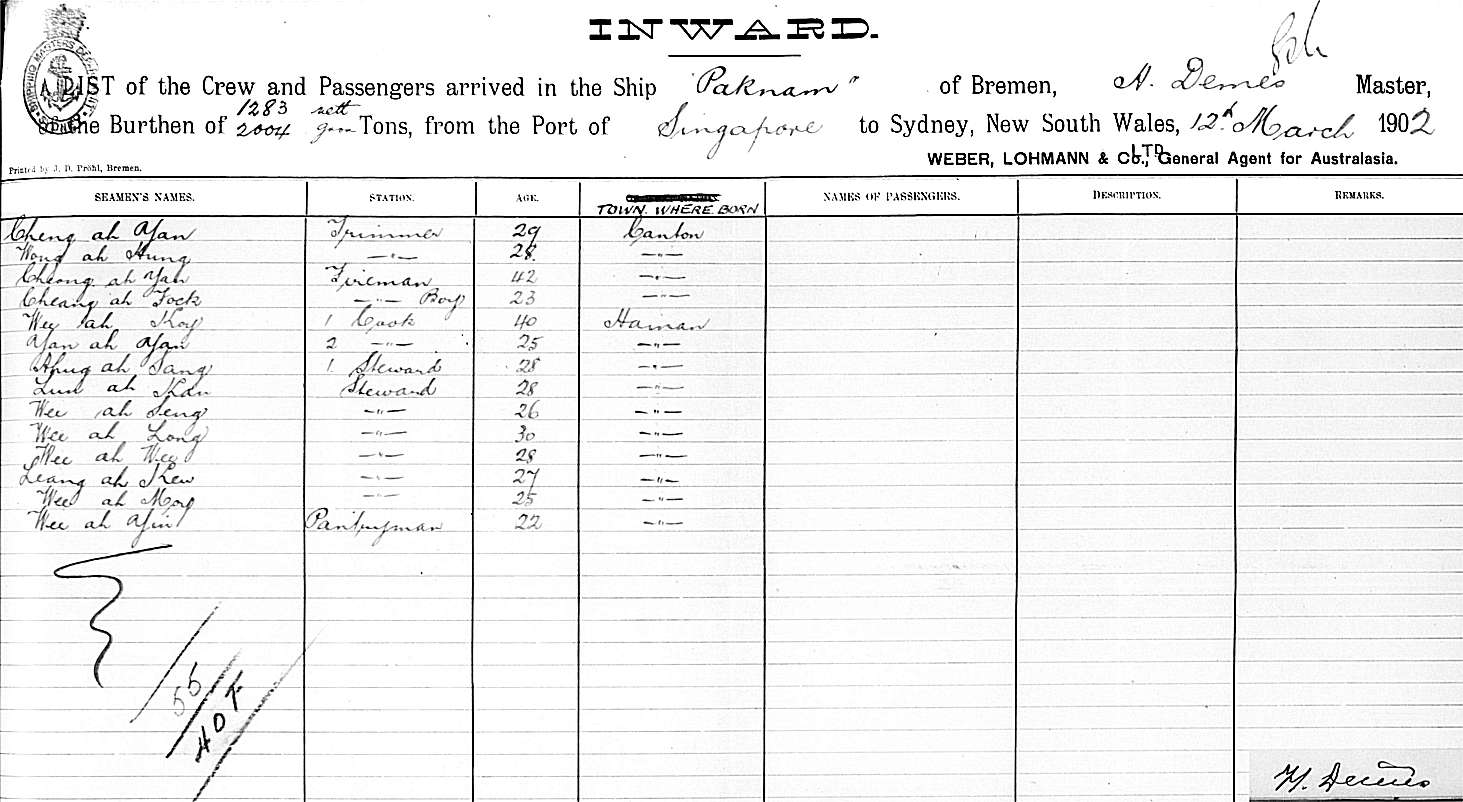 INWARD.
SHIPPING MASTERS DEPARTMENT. SYDNEY
A LIST of the Crew and Passengers arrived in the Ship "Paknam" of Bremen, H. Demes Master,
1283 nett
of the Burthen of 2004 Tons, from the Port of Singapore to Sydney, New South Wales, 12th March 1902
WEBER, LOHMANN & Co., LTD. General Agent for Australasia.
Printed by J. D. Pröhl, Bremen.
SEAMEN'S NAMES. STATION. AGE. TOWN. WHERE. BORN NAMES OF PASSENGERS. DESCRIPTION. REMARKS.
Cheng ah Yan Trimmer 29 Canton
Wong ah Hung —"— 28. —"—
Cheong ah Yan Fireman 42 —"—
Cheang ah Fock —"— Boy 23 —"—
Wee ah Koy 1 Cook 40 Hainan
Yan ah Yan 2 —"— 25 —"—
ah Sang 1. Steward 28 —"—
Lun ah Kan Steward 28 —"—
Wee ah Seng —"— 26 —"—
Wee ah Long —"— 30 —"—
Wee ah Wee —"— 28 —"—
Leang ah Kew —"— 27 —"—
Wee ah Moy —"— 25 —"—
Wee ah Yin Pantryman 22 —"—
55
40 F
H. Demes